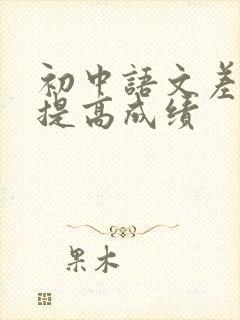 初中語文差
提高成绩
果木